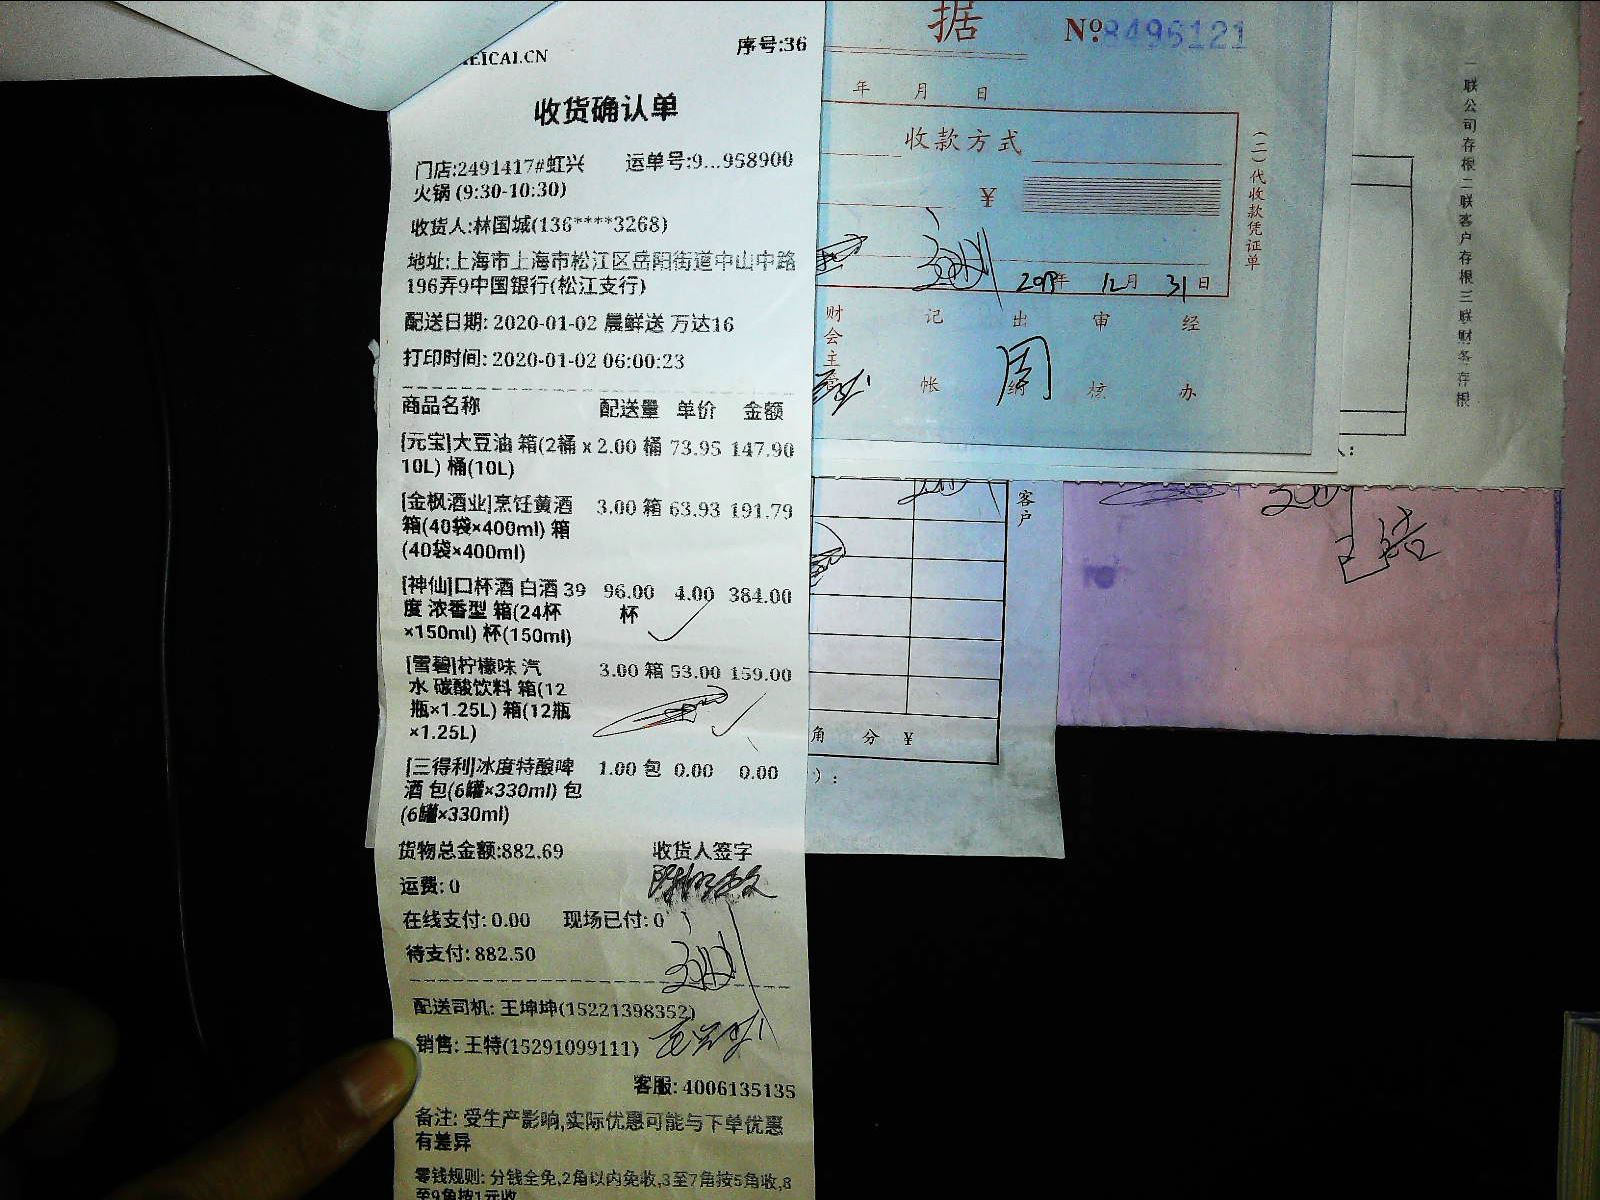 EICAI.CN
序号:36
收货确认单
门店:2491417#虹兴 运单号:9...958900
火锅 (9:30-10:30)
收货人:林国城(136****3268)
地址:上海市上海市松江区岳阳街道中山中路
196弄9中国银行(松江支行)
配送日期: 2020-01-02 晨鲜送 万达16
打印时间: 2020-01-02 06:00:23
商品名称 配送量 单价 金额
[元宝]大豆油 箱(2桶 x 2.00 桶 73.95 147.90
10L) 桶(10L)
[金枫酒业]烹饪黄酒 3.00 箱 63.93 191.79
箱(40袋×400ml) 箱
(40袋×400ml)
[神仙]口杯酒 白酒 39 96.00 4.00 384.00
度 浓香型 箱(24杯 杯
×150ml) 杯(150ml)
[雪碧]柠檬味 汽 3.00 箱 53.00 159.00
水 碳酸饮料 箱(12
瓶×1.25L) 箱(12瓶
×1.25L)
[三得利]冰度特酿啤 1.00 包 0.00 0.00
酒 包(6罐×330ml) 包
(6罐×330ml)
货物总金额:882.69 收货人签字
运费: 0
在线支付: 0.00 现场已付: 0
待支付: 882.50
配送司机: 王坤坤(15221398352)
销售: 王特(15291099111)
客服: 4006135135
备注: 受生产影响,实际优惠可能与下单优惠
有差异
零钱规则: 分钱全免,2角以内免收,3至7角按5角收,8
至9角按1元收
据 Nº 8496121
年 月 日
收款方式
¥
(二)代收款凭证单
2019年 12月 31日
财会主管 记帐 出纳 审核 经办
周
客户
角 分 ¥
):
一联公司存根二联客户存根三联财务存根